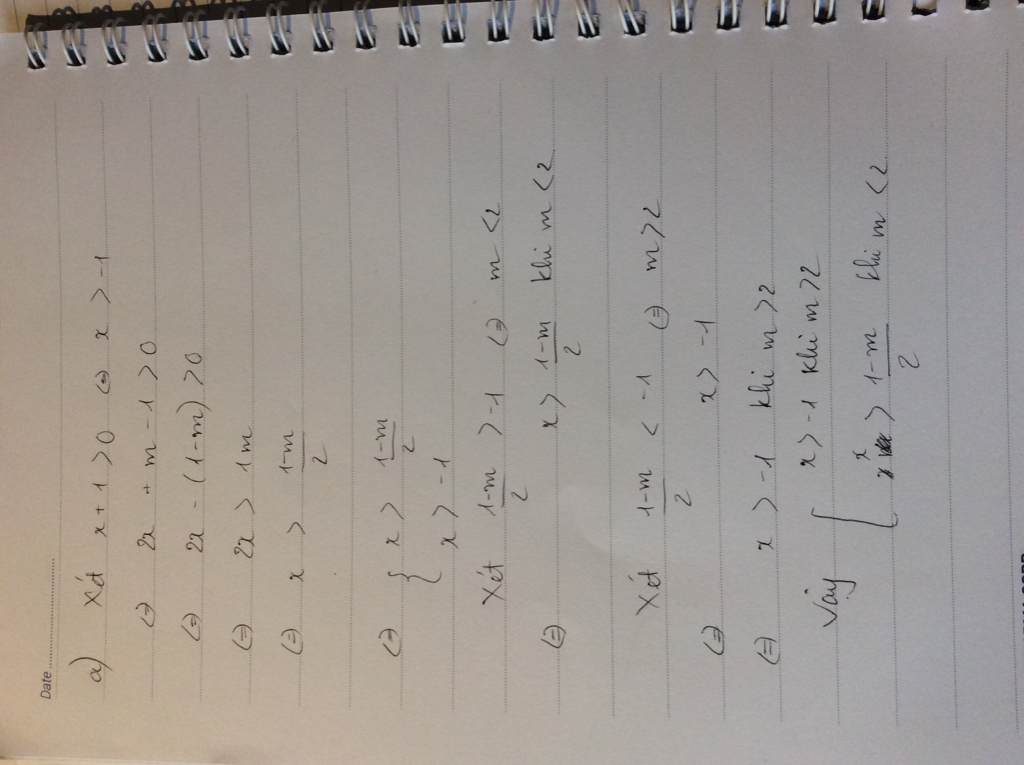 Date
a) Xét x + 1 > 0 ⇔ x > -1
⇔ 2x + m - 1 > 0
⇔ 2x - (1-m) > 0
⇔ 2x > 1 m
⇔ x > 1-m/2
⇔ { x > 1-m/2
x > -1
Xét 1-m/2 > -1 ⇔ m < 2
⇔ x > 1-m/2 khi m < 2
Xét 1-m/2 < -1 ⇔ m > 2
⇔ x > -1
⇔ x > -1 khi m > 2
Vậy [ x > -1 khi m > 2
x > 1-m/2 khi m < 2